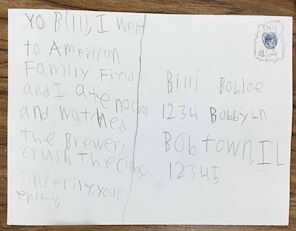 Yo Billi, I went
to American
Family Field
and I ate nachos
and watched
the Brewers
crush the cubs.
sinserily, your
Billi Bobjoe
1234 Bobby Ln
Bobtown, IL
12345